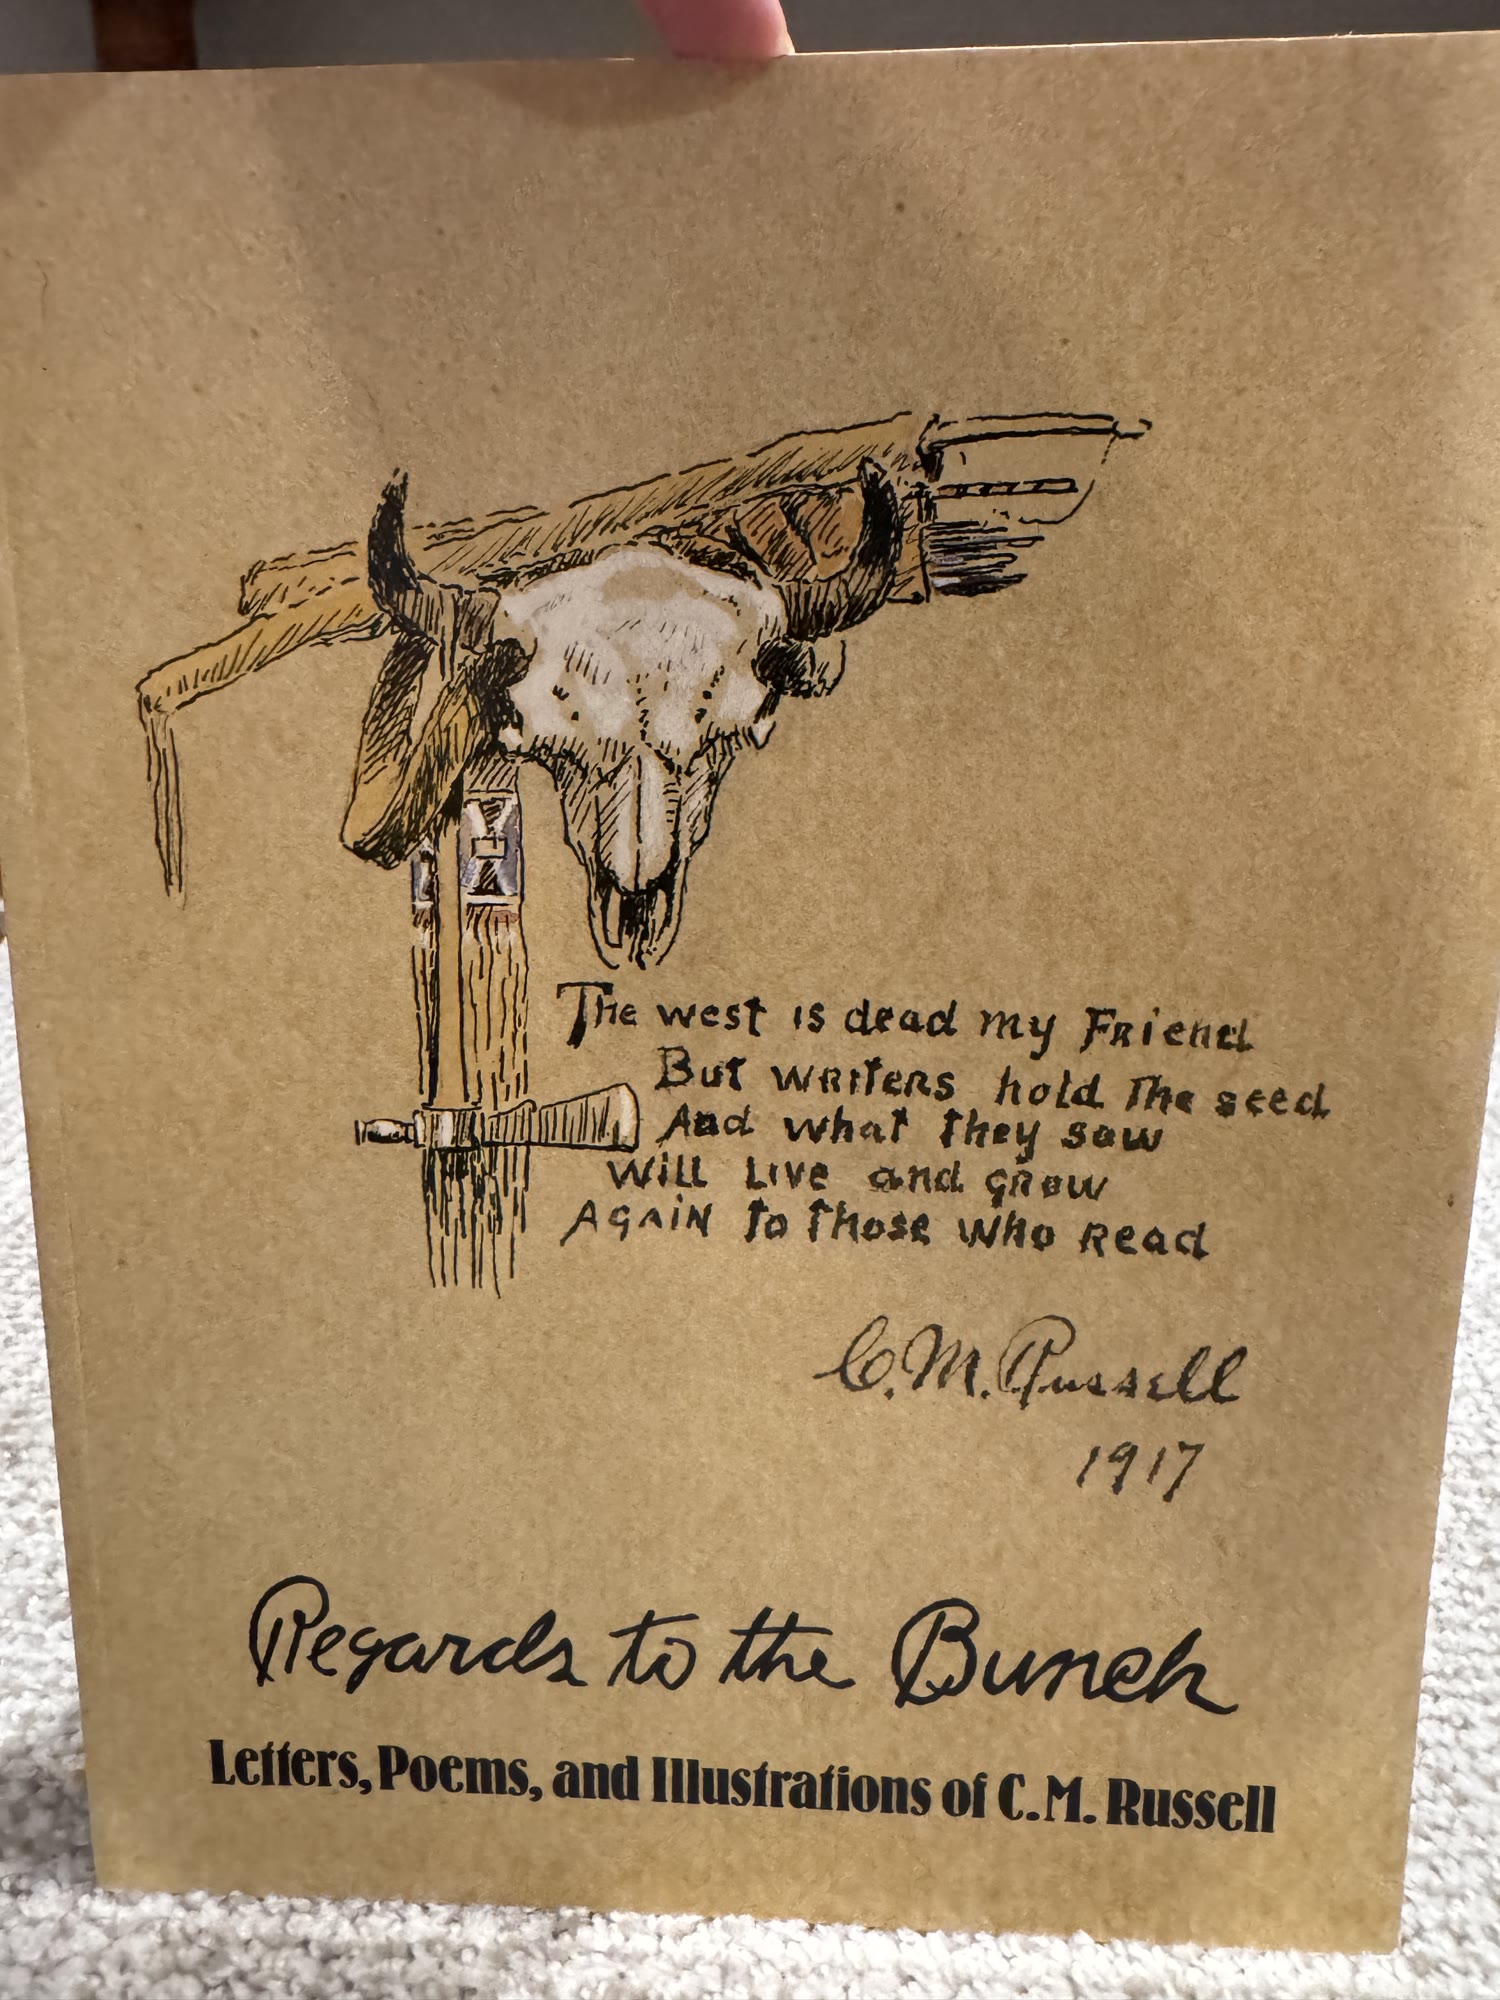 The west is dead my Friend
But writers hold the seed
And what they saw
Will Live and grow
Again to those who read
C.M. Russell
1917
Regards to the Bunch
Letters, Poems, and Illustrations of C.M. Russell